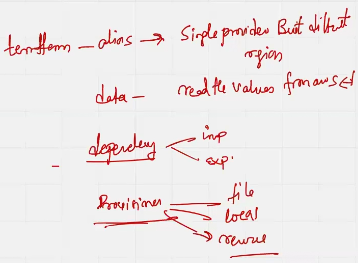 terraform — alias → Single provider But diffrent
region
data — read the values from aws
dependency imp
exp.
Provisioner file
local
remote